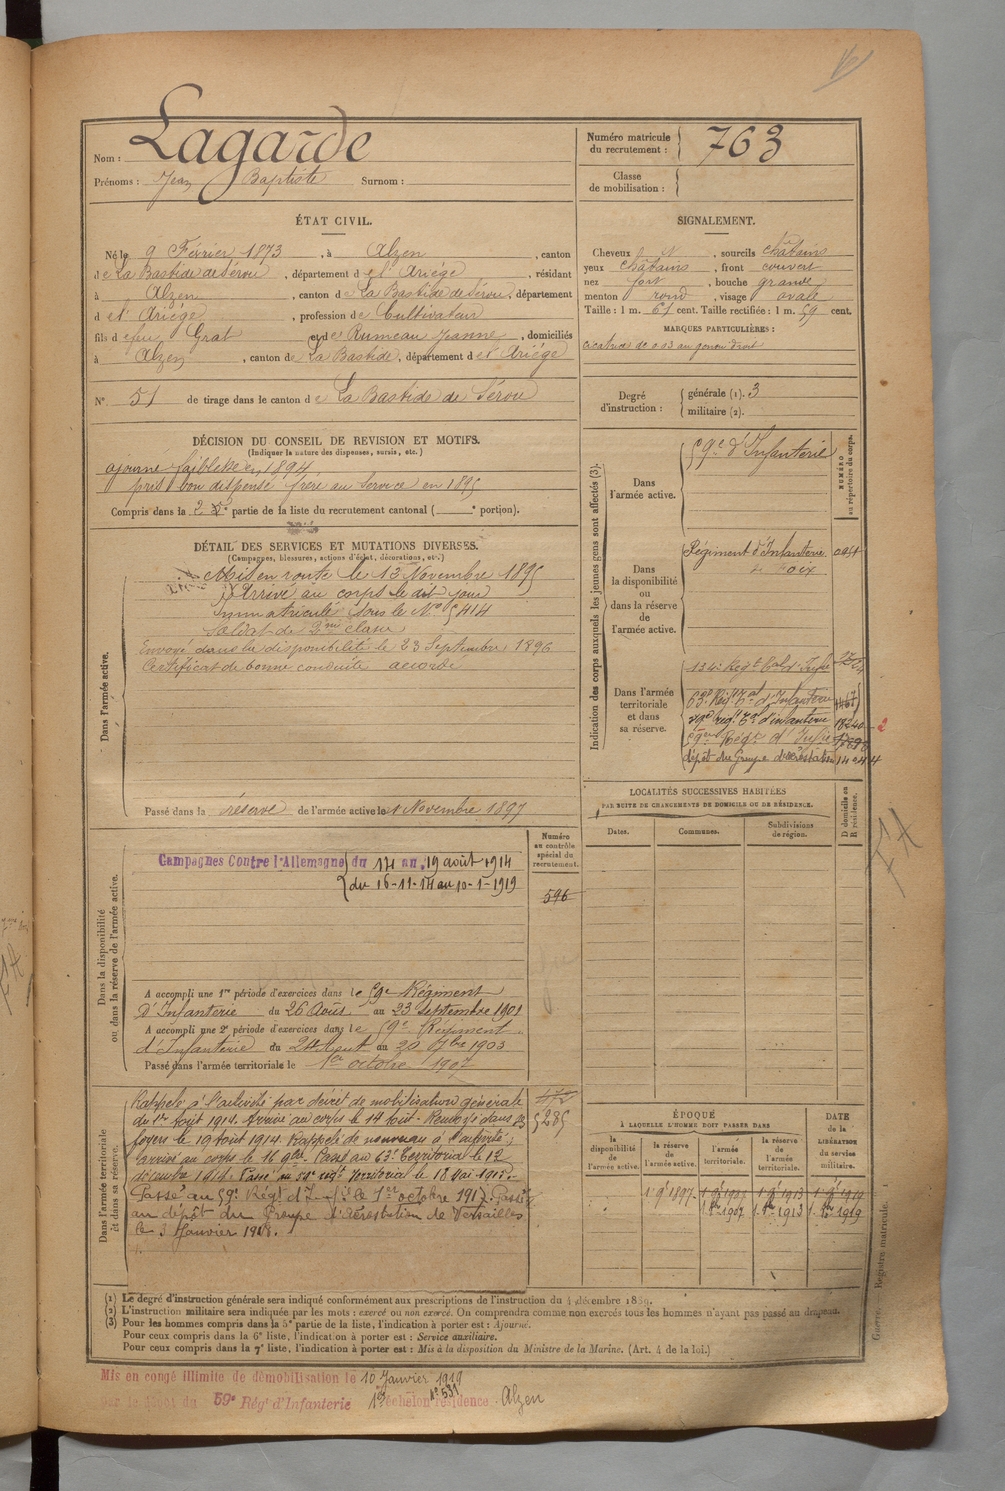 Nom : Lagarde
Prénoms : Jean Baptiste Surnom :
Numéro matricule du recrutement : 763
Classe de mobilisation :
ÉTAT CIVIL.
Né le 9 Février 1873, à Alzen, canton
de La Bastide de Sérou, département de l'Ariége, résidant
à Alzen, canton de La Bastide de Sérou, département
d el' Ariége, profession de Cultivateur
fils de feu Grat et de Rumeau Jeanne, domiciliés
à Alzen, canton de La Bastide, département d el' Ariége
N° 51 de tirage dans le canton de La Bastide de Sérou
SIGNALEMENT.
Cheveux N, sourcils châtains
yeux châtains, front couvert
nez fort, bouche grande
menton rond, visage ovale
Taille : 1 m. 61 cent. Taille rectifiée : 1 m. 59 cent.
MARQUES PARTICULIÈRES :
cicatrice de 0 03 au genou droit
Degré d'instruction : générale (1). 3
militaire (2).
DÉCISION DU CONSEIL DE REVISION ET MOTIFS.
(Indiquer la nature des dispenses, sursis, etc.)
ajourné faiblesse en 1894
pris bon dispensé frère au service en 1895
Compris dans la 2e partie de la liste du recrutement cantonal ( e portion).
DÉTAIL DES SERVICES ET MUTATIONS DIVERSES.
(Campagnes, blessures, actions d'éclat, décorations, etc.)
Dans l'armée active.
Mis en route le 13 Novembre 1895
Arrivé au corps le dit jour
Immatriculé sous le N° 5414
Soldat de 2me classe
Envoyé dans la disponibilité le 23 Septembre 1896
Certificat de bonne conduite accordé
Passé dans la réserve de l'armée active le 1 Novembre 1897
Indication des corps auxquels les jeunes gens sont affectés (3).
NUMÉRO au répertoire du corps.
Dans l'armée active.
59e d'Infanterie
Dans la disponibilité ou dans la réserve de l'armée active.
Régiment d'Infanterie
de Foix
Dans l'armée territoriale et dans sa réserve.
134e Régt tal d'Infie
63e Régt Tal d'Infanterie
59e Régt d'Infie
dépôt du Groupe d'aérostation
LOCALITÉS SUCCESSIVES HABITÉES
PAR SUITE DE CHANGEMENTS DE DOMICILE OU DE RÉSIDENCE.
Dates. Communes. Subdivisions de région. D domicile ou R résidence.
Dans la disponibilité ou dans la réserve de l'armée active.
Numéro au contrôle spécial du recrutement.
596
Campagnes Contre l'Allemagne du 14 au 19 août 1914
du 16-11-14 au 10-1-1919
A accompli une 1re période d'exercices dans le 59e Régiment
d'Infanterie du 26 Août au 23 septembre 1901
A accompli une 2e période d'exercices dans le 59e Régiment
d'Infanterie du 24 Aout au 20 7bre 1903
Passé dans l'armée territoriale le 1er octobre 1907
Dans l'armée territoriale et dans sa réserve.
Rappelé à l'activité par décret de mobilisation générale
du 1er Août 1914. Arrivé au corps le 14 Août. Renvoyé dans ses
foyers le 19 Août 1914. Rappelé de nouveau à l'activité,
arrivé au corps le 16 9bre. Passé au 63e Territorial le 12
décembre 1914. Passé au régt Territorial le 18 Mai 1915.
Passé au 59e Régt d'Inf. le 1er octobre 1917. Passé
au dépôt du Groupe d'Aérostation de Versailles
le 3 Janvier 1918.
5285
ÉPOQUE
À LAQUELLE L'HOMME DOIT PASSER DANS
la disponibilité de l'armée active. la réserve de l'armée active. l'armée territoriale. la réserve de l'armée territoriale.
DATE de la LIBÉRATION du service militaire.
1 9 1897
1913 1919
(1) Le degré d'instruction générale sera indiqué conformément aux prescriptions de l'instruction du 4 décembre 1889.
(2) L'instruction militaire sera indiquée par les mots : exercé ou non exercé. On comprendra comme non exercés tous les hommes n'ayant pas passé au drapeau.
(3) Pour les hommes compris dans la 5e partie de la liste, l'indication à porter est : Ajourné.
Pour ceux compris dans la 6e liste, l'indication à porter est : Service auxiliaire.
Pour ceux compris dans la 7e liste, l'indication à porter est : Mis à la disposition du Ministre de la Marine. (Art. 4 de la loi.)
Guerre. Registre matricule. 1
Mis en congé illimité de démobilisation le 10 Janvier 1919
par le dépôt du 59e Régt d'Infanterie 1er échelon N° 531 résidence Alzen